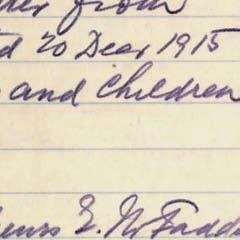 from
20 Dear 1915
and children
E. McFadd